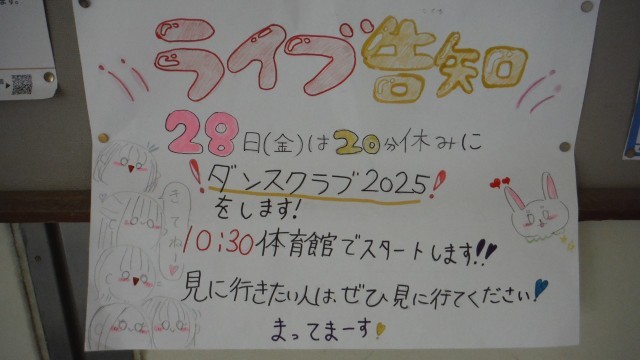 ライブ告知
28日(金)は20分休みに
ダンスクラブ2025!
をします!
10:30体育館でスタートします!!
きてねー
見に行きたい人は、ぜひ見に行てください!
まってまーす